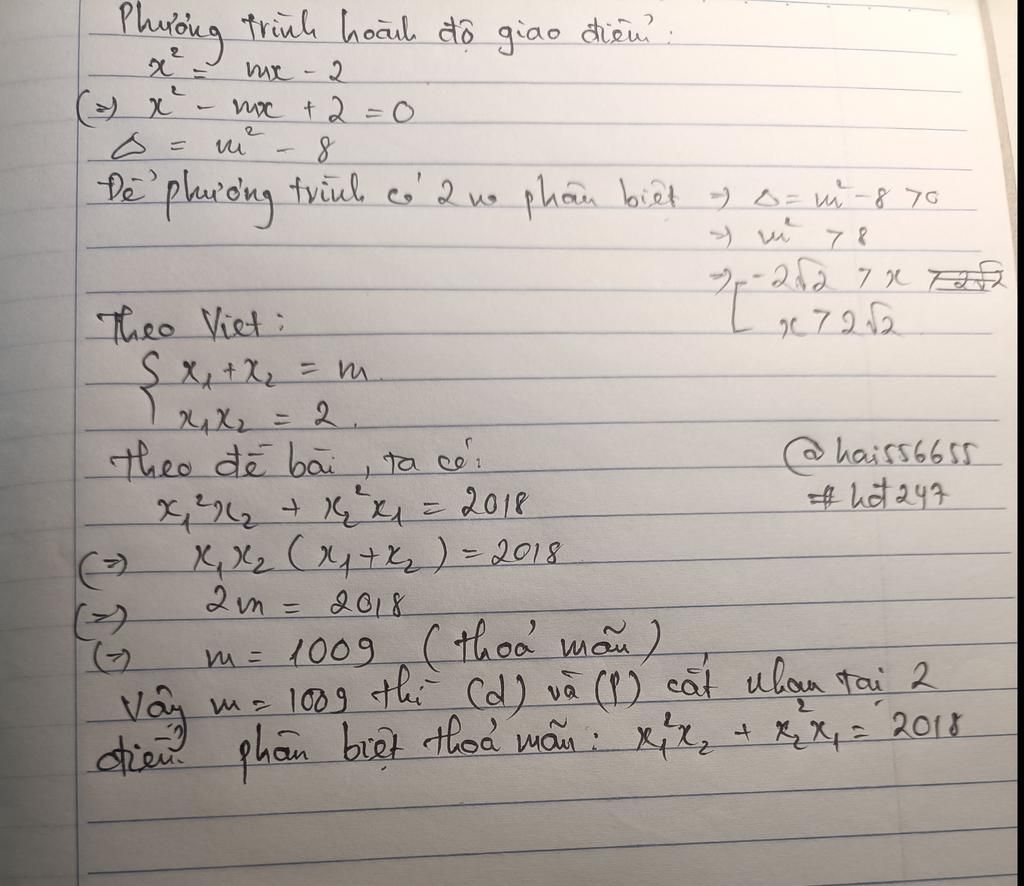 Phương trình hoành độ giao điểm:
x² = mx - 2
(=) x² - mx + 2 = 0
Δ = m² - 8
Để phương trình có 2 no phân biệt => Δ = m² - 8 > 0
=> m² > 8
=> [ -2√2 > x
x > 2√2
Theo Viet:
{ x₁ + x₂ = m
x₁x₂ = 2.
Theo đề bài, ta có:
@hai556655
x₁²x₂ + x₂²x₁ = 2018
#hđ247
(=) x₁x₂ (x₁ + x₂) = 2018
(=) 2m = 2018
(=) m = 1009 (thoả mãn)
Vậy m = 1009 thì (d) và (P) cắt nhau tại 2
điểm phân biệt thoả mãn: x₁²x₂ + x₂²x₁ = 2018